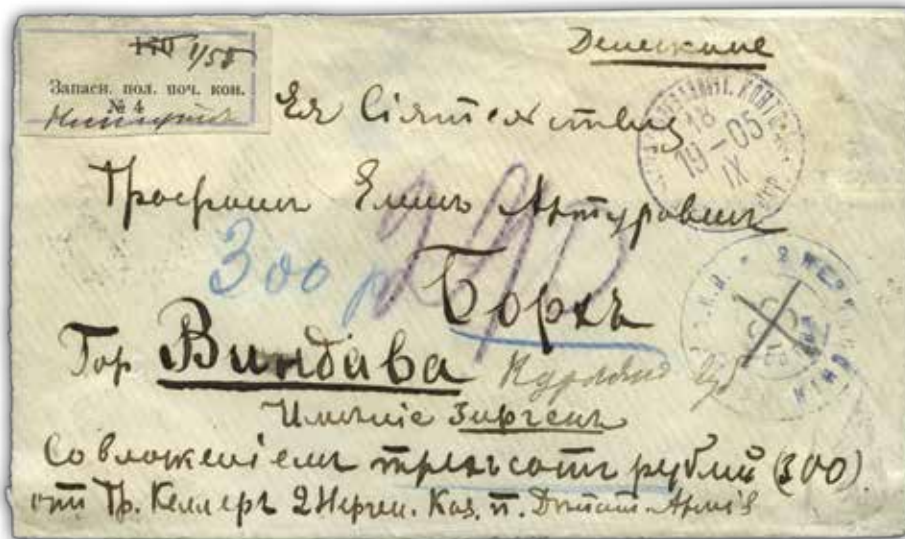 140 1/58
Запасн. пол. поч. кон.
№ 4
Денежное
Ея Сіятельству
Графинѣ Еленѣ Артуровнѣ
300 р
Борхъ
Гор Виндава
Курлянд губ
Имѣніе Зиргенъ
Со вложеніемъ трехсотъ рублей (300)
отъ Гр. Келлеръ 2 Нерчен. Каз. п. Арміѣ
18
19-05
IX
2 НЕРЧИНСКІЙ